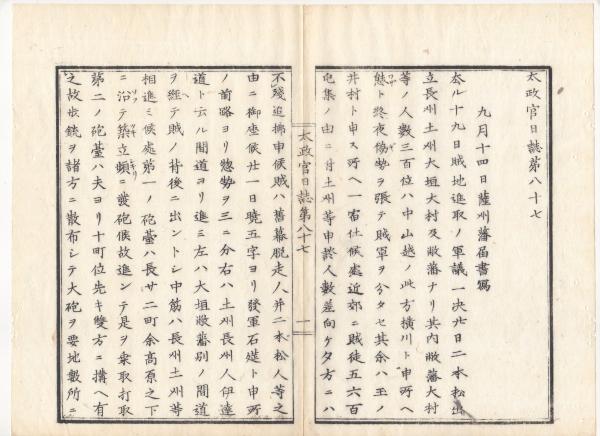 太政官日誌第八十七
九月十四日薩州藩届書寫
本ル十九日賊地進取ノ軍議一決廿日二本松出
立長州土州大垣大村及敝藩ナリ其内敝藩大村
等ノ人數三百位ハ中山越ノ此方横川ト申所ヘ
態ト終夜偽勢ヲ張テ賊軍ヲ分タセ其余ハ玉ノ
井村ト申ス所ヘ一宿仕候處近郊ニ賊徒五六百
屯集ノ由ニ付土州等申談人數差向ケタ方ニハ
太政官日誌第八十七
一
不殘追拂申候賊ハ舊幕脱走人并二本松人等之
由ニ御座候廿一日曉五字ヨリ發軍石莚ト申所
ノ前略ヨリ惣勢ヲ三ニ分右ハ土州長州人伊達
道ト云ル間道ヨリ進ミ左ハ大垣敝藩別ノ間道
ヲ經テ賊ノ背後ニ出ントシ中筋ハ長州土州等
相進ミ候處第一ノ砲臺ハ長サ二町余高原之下
ニ沿テ築立頻ニ發砲候故進ンテ是ヲ乗取打取
第二ノ砲臺ハ夫ヨリ十町位先キ雙方ニ構ヘ有
之故步銃ヲ諸方ニ散布シテ大砲ヲ要地數所ニ